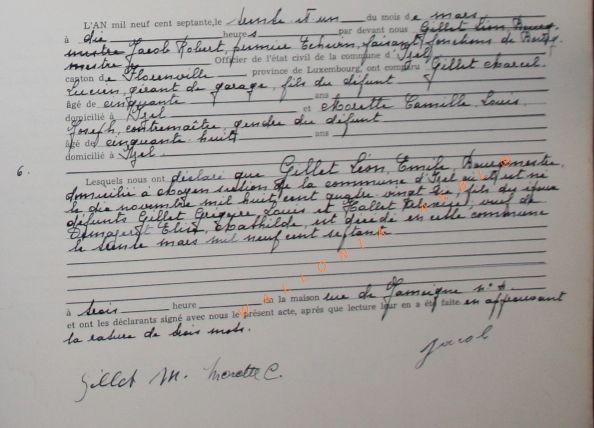 L'AN mil neuf cent septante, le trente et un du mois de mars
à dix heures par devant nous Gillet Léon Bourg-
mestre Jacob Robert, premier Echevin, faisant fonctions de Bourg-
mestre Officier de l'état civil de la commune d'Izel
canton de Florenville province de Luxembourg, ont comparu Gillet Marcel
Lucien, gérant de garage, fils du défunt
âgé de cinquante ans
domicilié à Izel et Morette Camille, Louis,
Joseph, contremaître, gendre du défunt
âgé de cinquante huit ans
domicilié à Izel.
6.
Lesquels nous ont déclaré que Gillet Léon, Emile, Bourgmestre,
domicilié à Moyen section de la commune d'Izel où il est né
le dix novembre mil huit cent quatre vingt six, fils des époux
défunts Gillet Grégoire, Louis et Hallet veuf de
Elise, Mathilde, est décédé en cette commune
le trente mars mil neuf cent septante
à trois heure en la maison rue de Jamoigne n°
et ont les déclarants signé avec nous le présent acte, après que lecture leur en a été faite en approuvant
la rature de trois mots.
Gillet M. Morette C.
Jacob
WALLONIA